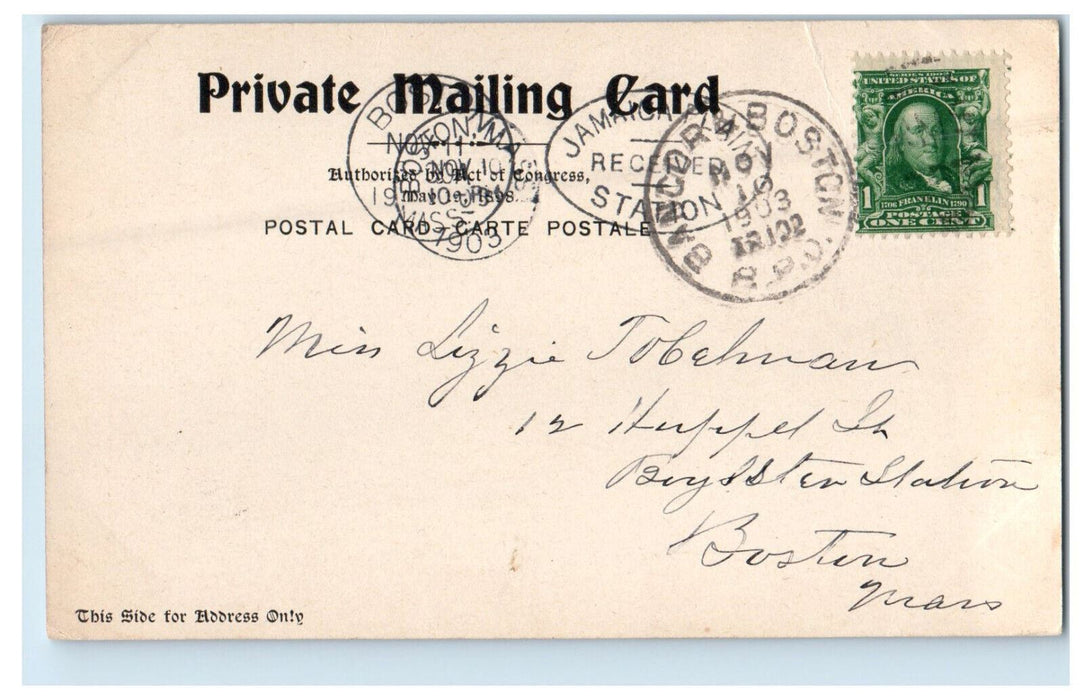 Private Mailing Card
Authorized by Act of Congress,
May 19, 1898.
POSTAL CARD-CARTE POSTALE
BOSTON, MASS
NOV 10
1903
JAMAICA PLAIN
RECEIVED
STATION
BANGOR & BOSTON
NOV
10
1903
TR 102
R.P.O.
SERIES 1902
UNITED STATES OF
AMERICA
1 1
1706 FRANKLIN 1790
POSTAGE
ONE CENT
Miss Lizzie Tobelman
12 Huppel St
Boylston Station
Boston
Mass
This Side for Address Only